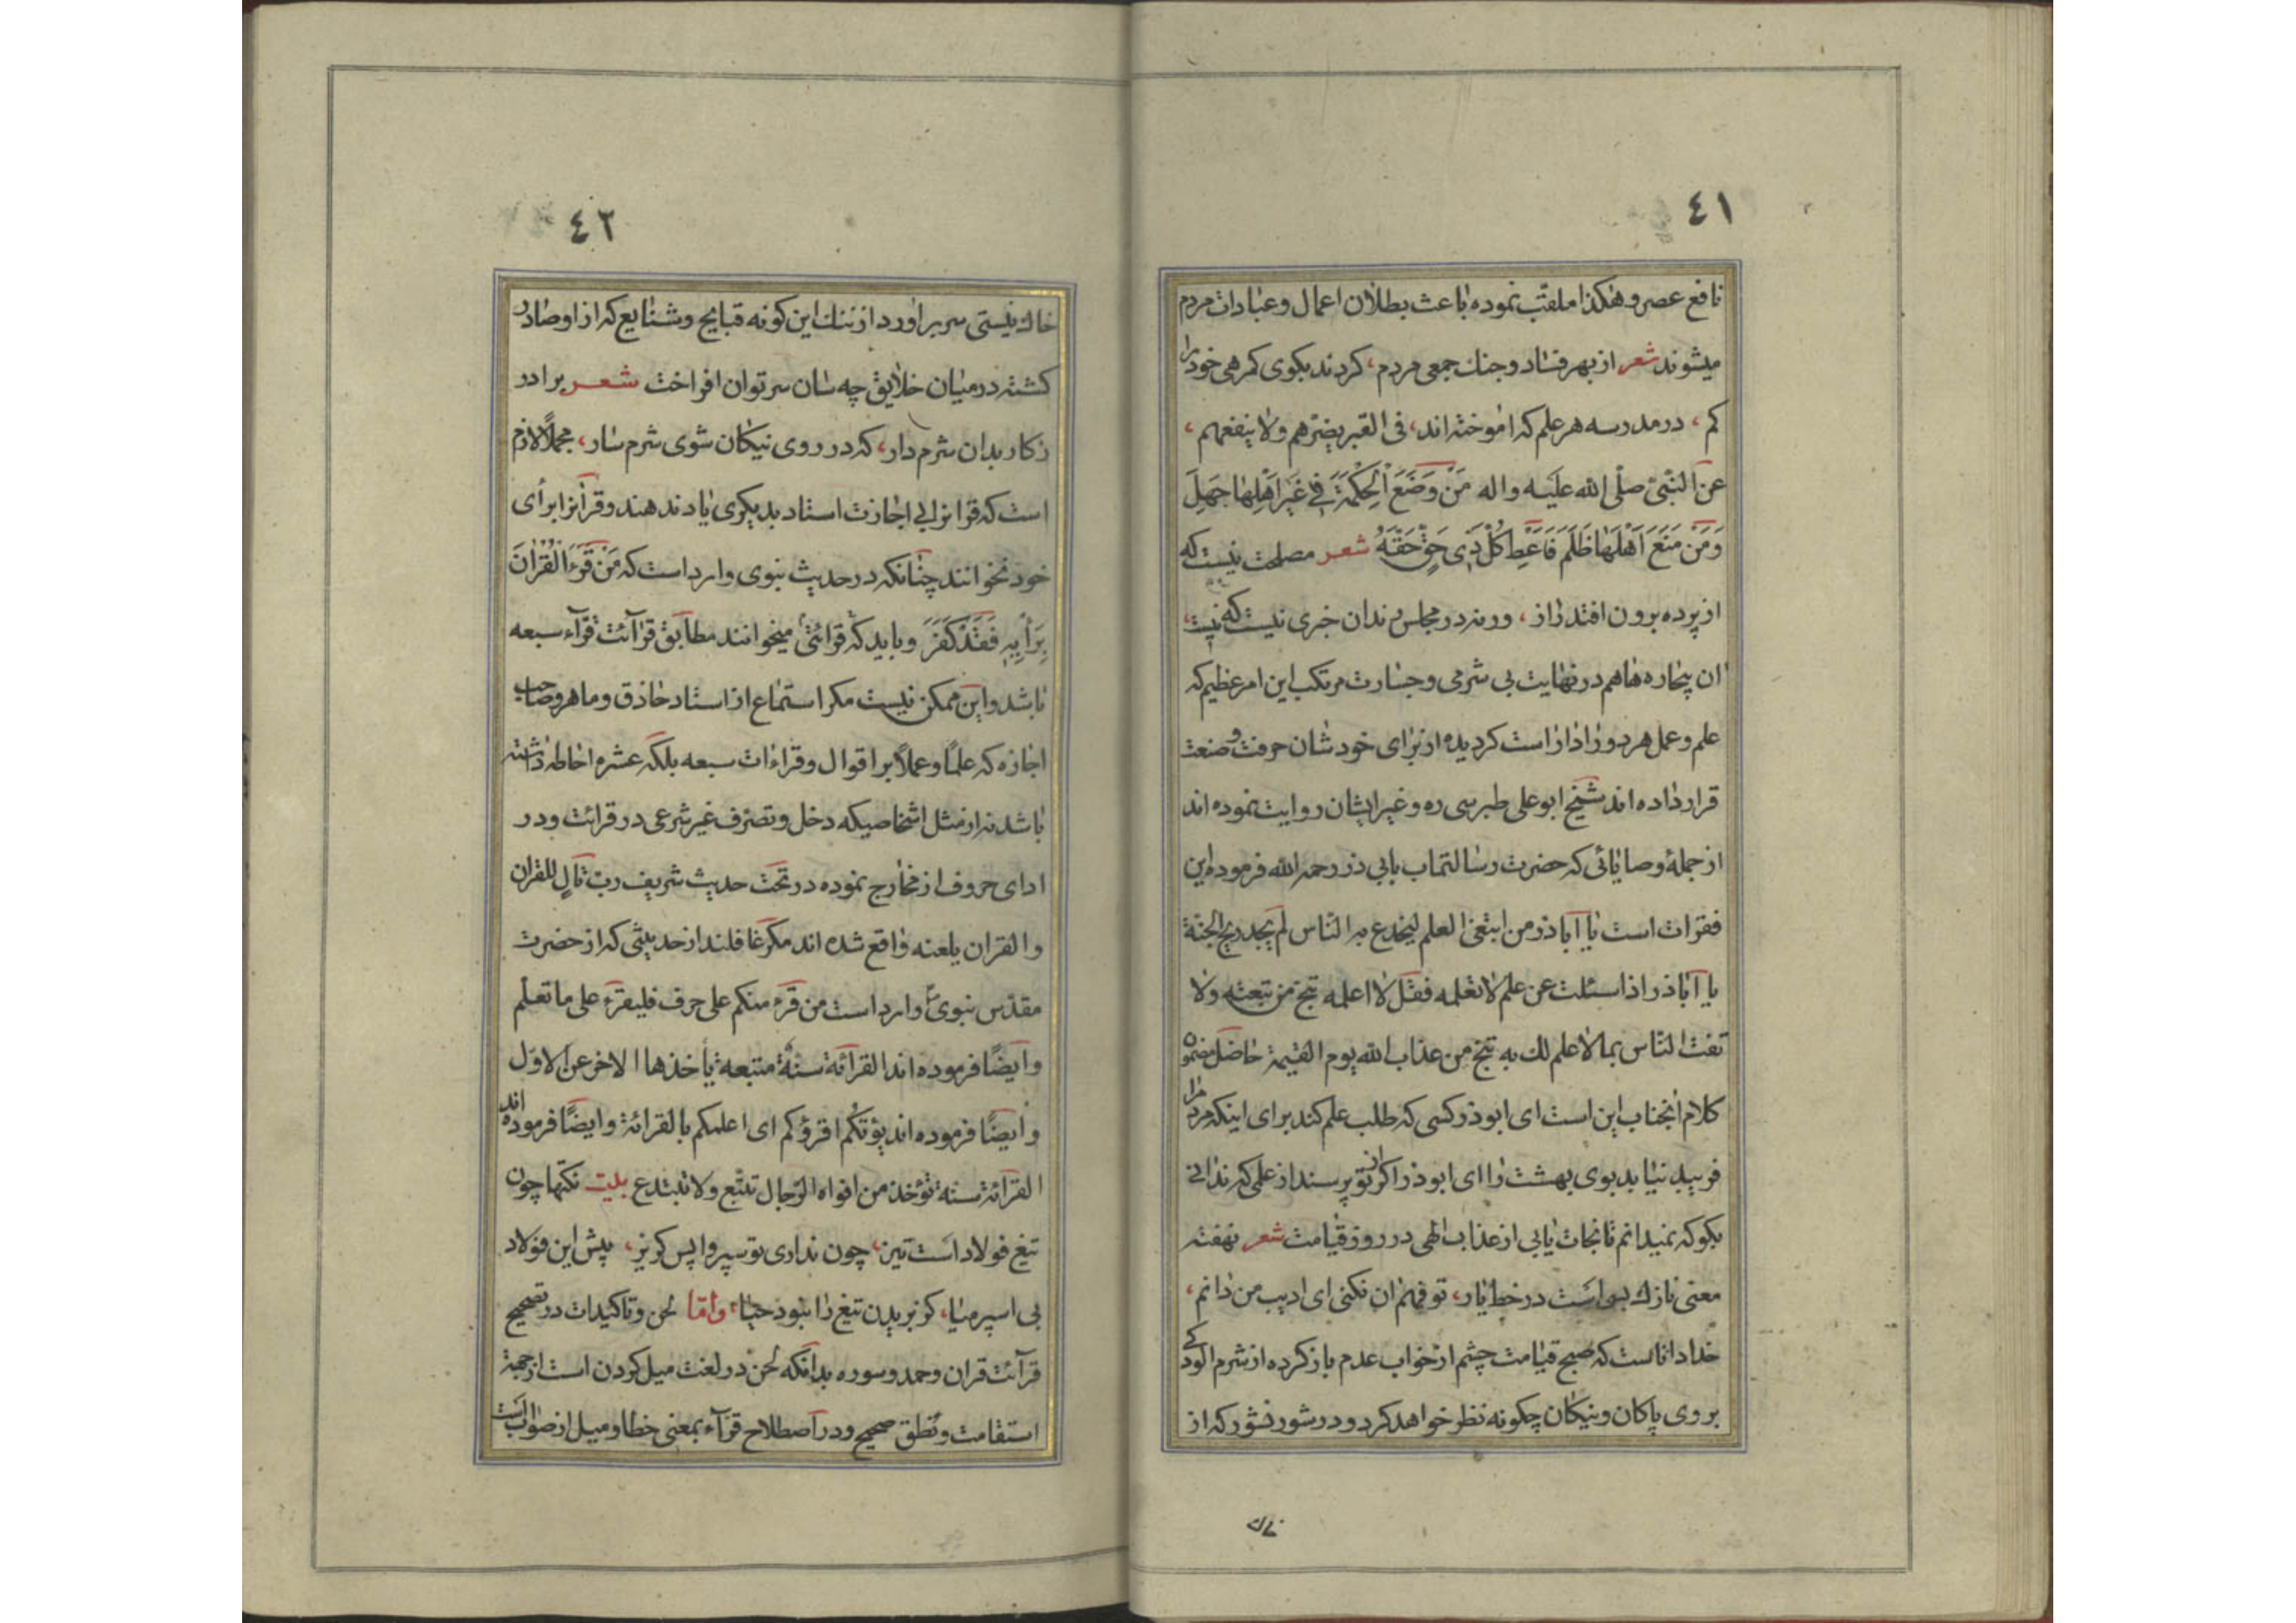 ٤١
نافع عصر و هکذا ملقّب نموده باعث بطلان اعمال و عبادات مردم
میشوند شعر از بهر فساد و جنك جمعی مردم، کردند بکوی کمرهی خود را
کم، در مدرسه هر علم که اموخته اند، فی القبر یضرّهم ولا ینفعهم،
عن النّبیّ صلّی الله علیه واله مَنْ وَضَعَ الْحِکْمَةَ فی غَیْرِ اَهْلِها جَهِلَ
وَمَنْ مَنَعَ اَهْلَها ظَلَمَ فَاَعْطِ کُلَّ ذی حَقٍّ حَقَّهُ شعر مصلحت نیست که
از پرده برون افتد راز، ورنه در مجلس رندان خبری نیست که نیست،
ان بیچاره ها هم در نهایت بی شرمی و جسارت مرتکب این امر عظیم که
علم و عمل هر دو را دارا است کردیده از برای خودشان حرفت و صنعت
قرار داده اند شیخ ابو علی طبرسی ره و غیر ایشان روایت نموده اند
از جملهٔ وصایائی که حضرت رسالتماب بابی ذر رحمه الله فرموده این
فقرات است یا اباذر من ابتغی العلم لیخدع به النّاس لم یجد ریح الجنّة
یا اباذر اذا سئلت عن علم لا تعلمه فقل لا اعلمه تنج من تبعته ولا
تفت النّاس بما لا علم لك به تنج من عذاب الله یوم القیمة حاصل مضمون
کلام انجناب این است ای ابوذر کسی که طلب علم کند برای اینکه مردم را
فریبد نیابد بوی بهشت را ای ابوذر اکر از تو پرسند از علمی که ندانی
بکو که نمیدانم تا نجات یابی از عذاب الهی در روز قیامت شعر نهفته
معنی نازك بسی است در خط یار، تو فهم ان نکنی ای ادیب من دانم،
خدا دانا است که صبح قیامت چشم از خواب عدم باز کرده از شرم الودکی
بر روی پاکان و نیکان چکونه نظر خواهد کرد و در شور نشور که از
خاك
٤٢
خاك نیستی سر بر اورد از ننك این کونه قبایح و شنایع که از او صادر
کشته در میان خلایق چه سان سر توان افراخت شعر برادر
ز کار بدان شرم دار، که در روی نیکان شوی شرم سار، مجملاً لازم
است که قرانرا بی اجازت استاد بدیکری یاد ندهند و قرانرا برأی
خود نخوانند چنانکه در حدیث نبوی وارد است که مَنْ قَرَءَ الْقُرْانَ
بِرَأیِهِ فَقَدْ کَفَرَ و باید که قرائتی میخوانند مطابق قرائت قرّاء سبعه
باشد و این ممکن نیست مکر استماع از استاد حاذق و ماهر و صاحب
اجازه که علماً و عملاً بر اقوال و قراءات سبعه بلکه عشره احاطه داشته
باشد نه از مثل اشخاصیکه دخل و تصرّف غیر شرعی در قرائت و در
ادای حروف از مخارج نموده در تحت حدیث شریف ربّ تالٍ للقران
والقران یلعنه واقع شده اند مکر غافلند از حدیثی که از حضرت
مقدّس نبوی ص وارد است من قرء منکم علی حرف فلیقرء علی ما تعلّم
و ایضًا فرموده اند القرائة سنّة متبعة یأخذها الاخر عن الاوّل
و ایضًا فرموده اند یؤتکم اقرؤکم ای اعلمکم بالقرائة و ایضًا فرموده اند
القرائة سنة تؤخذ من افواه الرّجال تتّبع ولا تبتدع بیت نکتها چون
تیغ فولاد است تیز، چون نداری تو سپر واپس کریز، پیش این فولاد
بی اسپر میا، کز بریدن تیغ را نبود حیا، وامّا لحن و تاکیدات در تصحیح
قرائت قران و حمد و سوره بدانکه لحن در لغت میل کردن است از جهة
استقامت و نطق صحیح و در اصطلاح قرّاء بمعنی خطا و میل از صواب است